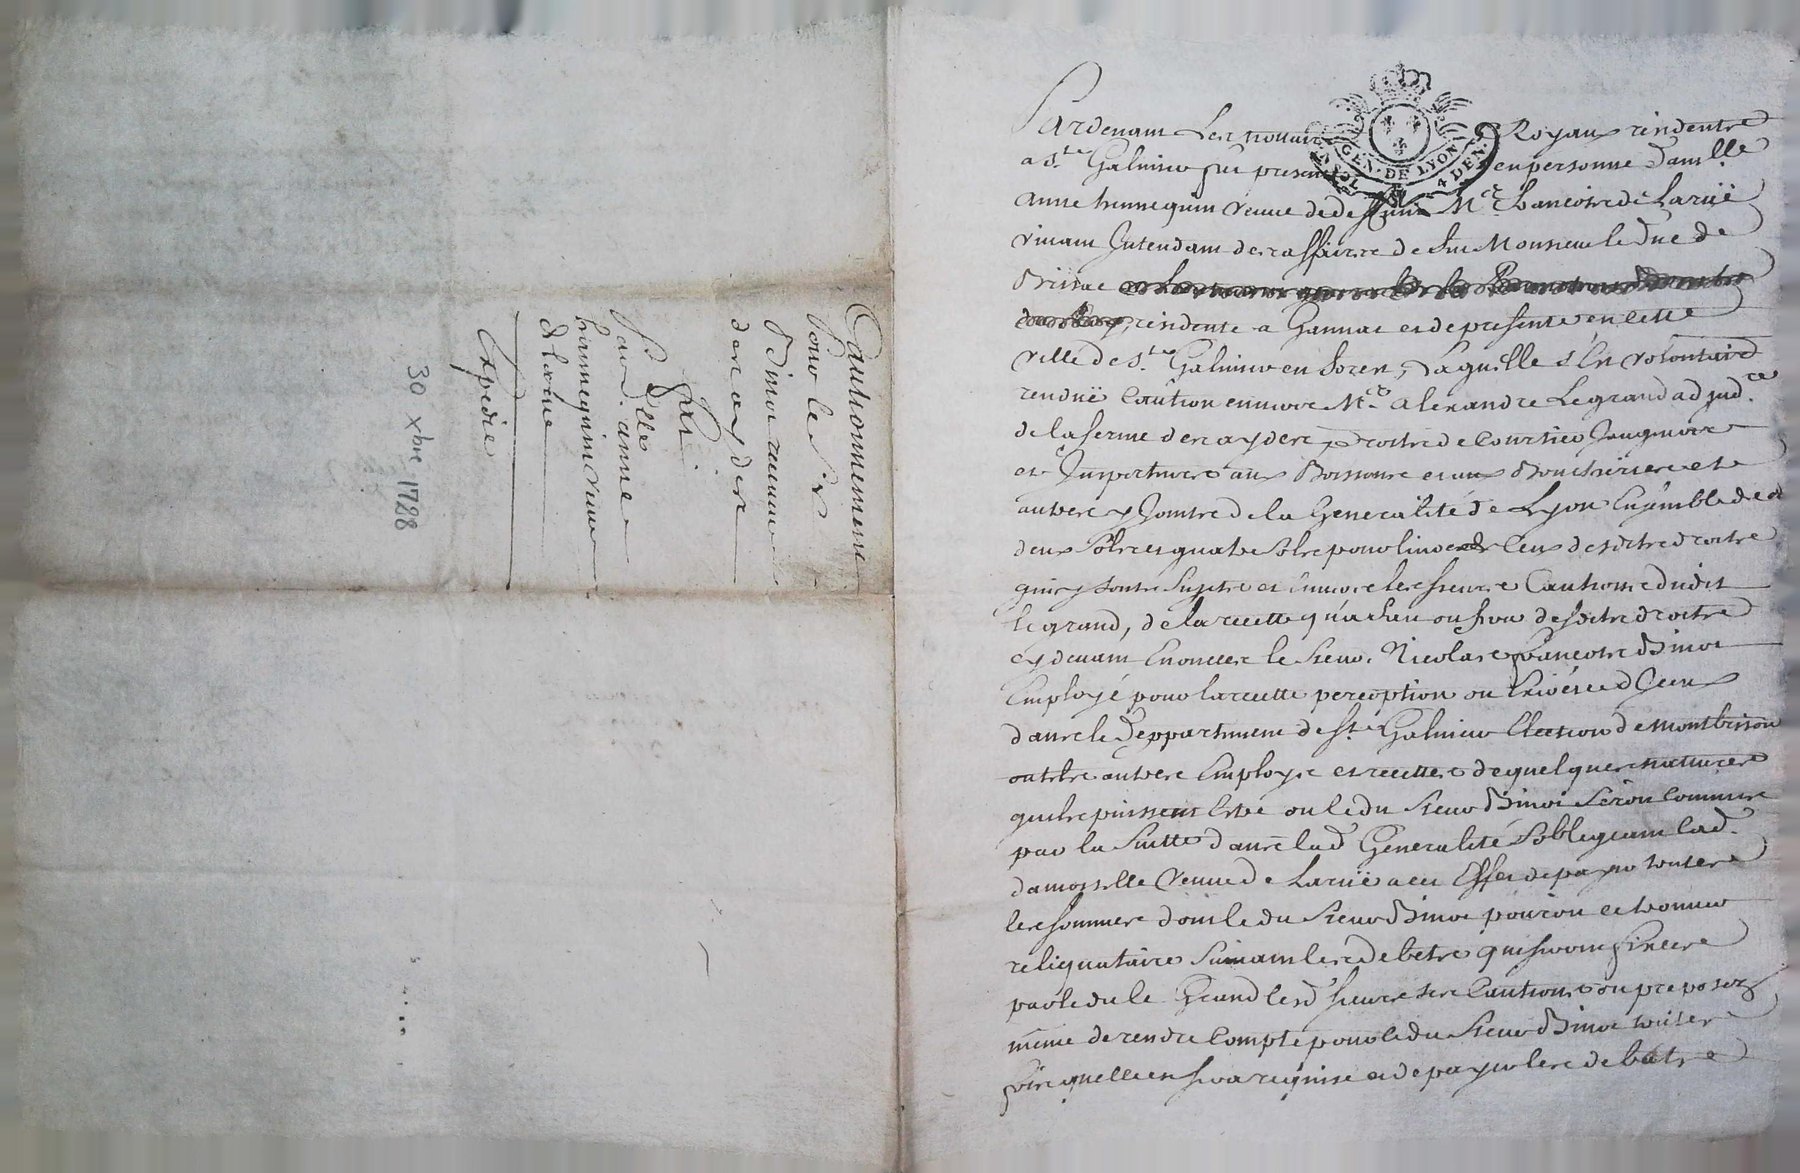 Cautionnement
pour le Sr
Binoi receveur
des aydes
Par
Dlle anne
hennequin veuve
de larue
Expedié
30 xbre 1728
GEN. DE LYON
4 DEN.
Pardevant Les nottaires Royaux residents
a St Galmier fut present en personne Damlle
anne hennequin veuve de deffunt Mre francois de Laruë
vivant Intendant des affaires de feu Monsieur le Duc de
Brissac
residente a Gannat et de presente en cette
ville de St Galmier en forez, Laquelle s'est volontairt
renduë Caution envers Me alexandre Legrand adjudre
de la ferme des aydes droits de Courtiers Jaugeurs
et Inspecteurs aux Boissons et aux Boucheries et
autres y Joints de la Generalité de Lyon Ensemble des
deux sols et quatre sols pour livre de Ceux desdits droits
qui y sont Sujets et Envers les sieurs Cautions dudit
le grand, de la recette qu'a fait ou fera desdits droits
cy devant Enoncez le sieur Nicolas francois Binoi
Employé pour la recette perception ou Exercice d'Iceux
dans le Deppartement de St Galmier Election de Montbrison
autres Employs et recettes de quelques natures
quils puissent Estre ou ledit sieur Binoi Seroit Commis
par la Suitte dans lad. Generalité Sobligeant lad.
damoiselle veuve de Laruë a cet Effet de payer toutes
les sommes dont ledit sieur Binoi pourroit se trouver
reliquataire Suivant les debets qui seront
par ledit le Grand lesd. sieurs ses Cautions ou preposez
même de rendre Compte pour ledit sieur Binoi toutes
fois quelle en sera requise et de payer les debets